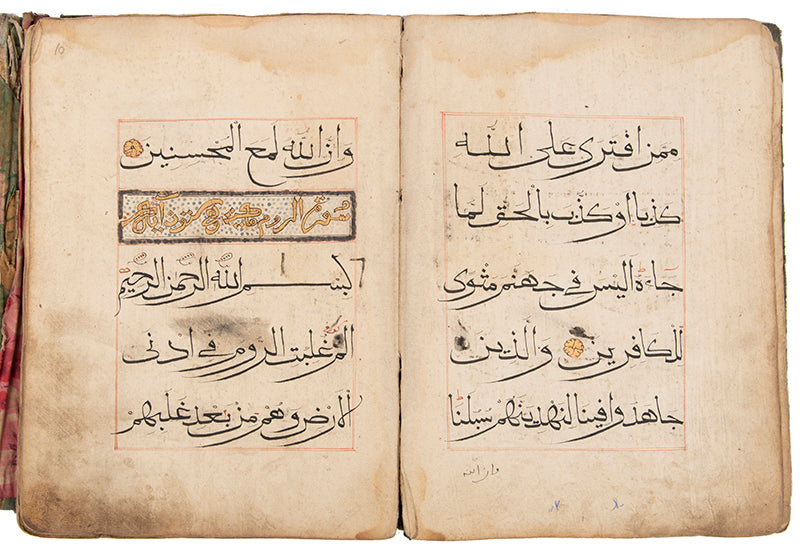 ممن افترى على الله
كذبا او كذب بالحق لما
جاءه اليس في جهنم مثوى
للكافرين والذين
جاهدوا فينا لنهدينهم سبلنا
وان الله
وان الله لمع المحسنين
سورة الروم ستون
بسم الله الرحمن الرحيم
الم غلبت الروم في ادنى
الارض وهم من بعد غلبهم